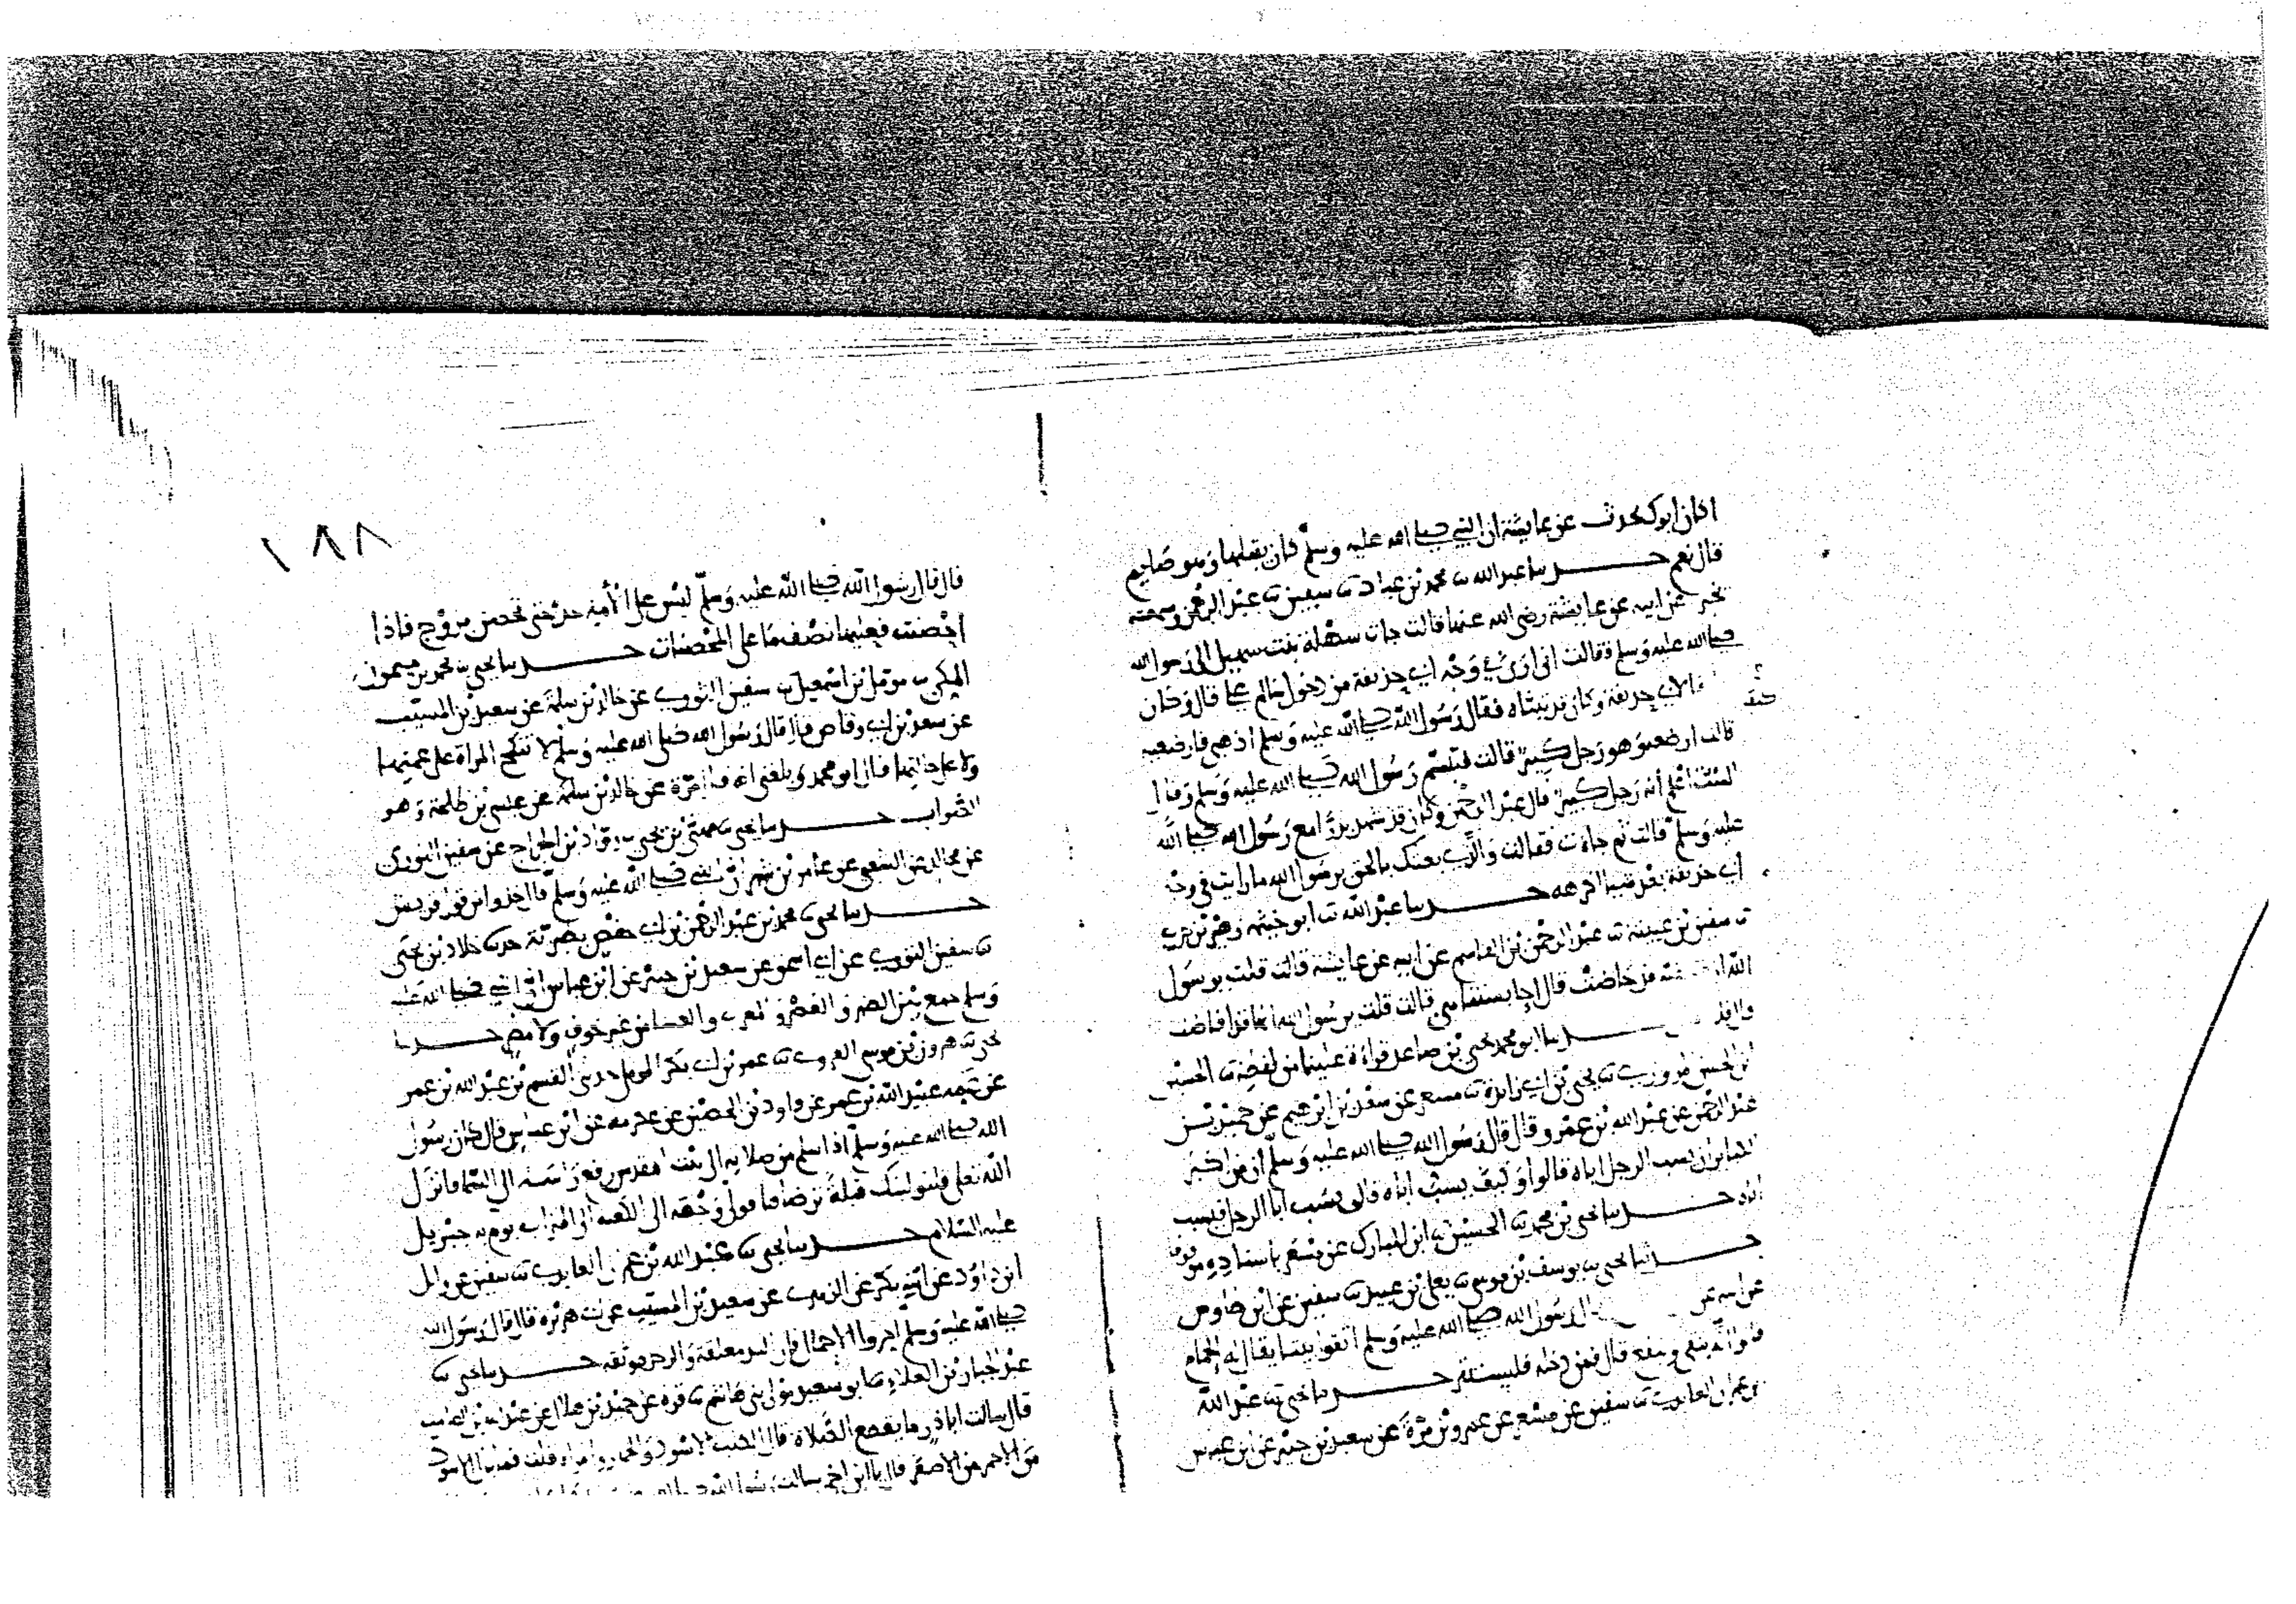 اكان ابوك يحدث عن عايشة ان النبي صلى الله عليه وسلم كان يقبلها وهو صايم
قال نعم حدثنا عبد الله ثنا محمد بن عباد ثنا سفين ثنا عبد الرحمن وسمعته
يخبر عن ابيه عن عايشة رضي الله عنها قالت جات سهلة بنت سهيل الى رسول الله
صلى الله عليه وسلم فقالت اني ارى في وجه ابي حذيفة من دخول سالم علي قال وكان
لابي حذيفة وكان قد تبناه فقال رسول الله صلى الله عليه وسلم اذهبي فارضعيه
قالت ارضعه وهو رجل كبير قالت فتبسم رسول الله صلى الله عليه وسلم وقال
الست اعلم انه رجل كبير قال عبد الرحمن وكان قد شهد بدرا مع رسول الله صلى الله
عليه وسلم قالت ثم جات فقالت والذي بعثك بالحق يرسول الله ما رايت في وجه
ابي حذيفة بعد شيا اكرهه حدثنا عبد الله ثنا ابو خيثمة زهير بن حرب
ثنا سفين بن عيينة ثنا عبد الرحمن بن القاسم عن ابيه عن عايشة قالت قلت يرسول
الله ان قد حاضت قال احابستنا هي قالت قلت يرسول الله انها قد افاضت
قال فلا حدثنا ابو محمد يحيى بن صاعد قراءة علينا من لفظه ثنا الحسين
ابن الحسن المروزي ثنا يحيى بن ابي زايدة ثنا مسعر عن سعد بن ابرهيم عن حميد بن
عبد الرحمن عن عبد الله بن عمرو قال قال رسول الله صلى الله عليه وسلم ان من اكبر
الكباير ان يسب الرجل اباه قالوا وكيف يسب اباه قال يسب ابا الرجل فيسب
اباه حدثنا يحيى بن محمد ثنا الحسين ثنا ابن المبارك عن مسعر باسناده موقوفا
حدثنا يحيى ثنا يوسف بن موسى ثنا يعلى بن عبيد ثنا سفين عن ابن طاوس
عن ابيه عن رسول الله صلى الله عليه وسلم اتقوا بيتا يقال له الحمام
قالوا انه ينقي وينفع قال فمن دخله فليستتر حدثنا يحيى ثنا عبد الله
بن عمران العابدي ثنا سفين عن مسعر عن عمرو بن مرة عن سعيد بن جبير عن ابن عباس
١٨٨
قال قال رسول الله صلى الله عليه وسلم ليس على الامة حد حتى تحصن بزوج فاذا
احصنت فعليها نصف ما على المحصنات حدثنا يحيى ثنا محمد بن ميمون
المكي ثنا مومل بن اسمعيل ثنا سفين الثوري عن خالد بن سلمة عن سعيد بن المسيب
عن سعد بن ابي وقاص قال قال رسول الله صلى الله عليه وسلم لا تنكح المراة على عمتها
ولا على خالتها قال ابو محمد وبلغني انه مرة عن خالد بن سلمة عن عيسى بن طلحة وهو
الصواب حدثنا يحيى ثنا بن يحيى ثنا رواد بن الجراح عن سفين الثوري
عن مجالد عن الشعبي عن عامر بن شهر ان النبي صلى الله عليه وسلم قال خذوا من قول قريش
حدثنا يحيى ثنا محمد بن عبد الرحمن بن ابي حفص بصرية حدثنا خلاد بن يحيى
ثنا سفين الثوري عن ابي اسحق عن سعيد بن جبير عن ابن عباس ان النبي صلى الله عليه
وسلم جمع بين الظهر والعصر والمغرب والعشا من غير خوف ولا مطر حدثنا
يحيى ثنا هرون بن موسى الفروي ثنا عمر بن ابي بكر الموصلي حدثني القسم بن عبد الله بن عمر
عن عمه عبيد الله بن عمر عن داود بن الحصين عن عكرمة عن ابن عباس قال كان رسول
الله صلى الله عليه وسلم اذا سلم من صلاته الى بيت المقدس رفع راسه الى السما فانزل
الله تعالى فلنولينك قبلة ترضاها فول وجهه الى الكعبة الى الميزاب يوم به جبريل
عليه السلام حدثنا يحيى ثنا عبد الله بن عمران العابدي ثنا سفين عن وايل
ابن داود عن ابنه بكر عن الزهري عن سعيد بن المسيب عن ابي هريرة قال قال رسول الله
صلى الله عليه وسلم اخروا الاحمال فان اليد معلقة والرجل موثقة حدثنا يحيى ثنا
عبد الجبار بن العلاء ثنا ابو سعيد مولى بني هاشم ثنا قرة عن حميد بن هلال عن عبد الله بن الصامت
قال سالت ابا ذر ما يقطع الصلاة قال الكلب الاسود والحمار والمراة قلت فما بال الاسود
من الاحمر من الاصفر قال يا ابن اخي سالت رسول الله